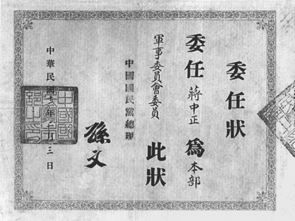 委任狀
委任 蔣中正 為本部
軍事委員會委員
此狀
中國國民黨總理
孫文
中華民國
三日